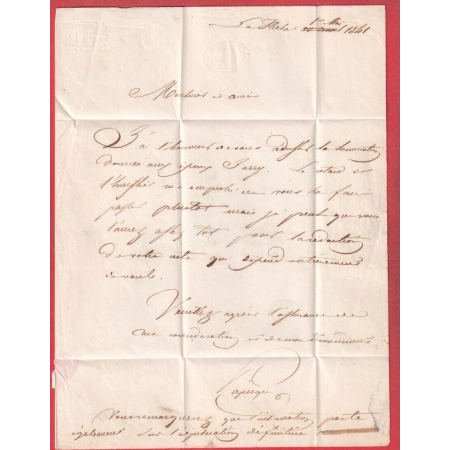 La flèche 1er Mai 1841
Monsieur et ami
J'ai l'honneur de vous adresser la sommation
donnée aux époux Passy. Le retard de
l'huissier m'a empêché de vous la faire
passer plutôt mais je pense que vous
l'aurez assez tôt pour la rédaction
de votre acte qui dépend entièrement
de vous.
Veuillez agréer l'assurance de
ma considération et de mon dévouement.
Vous remarquerez que l'intimation porte
également sur l'adjudication définitive